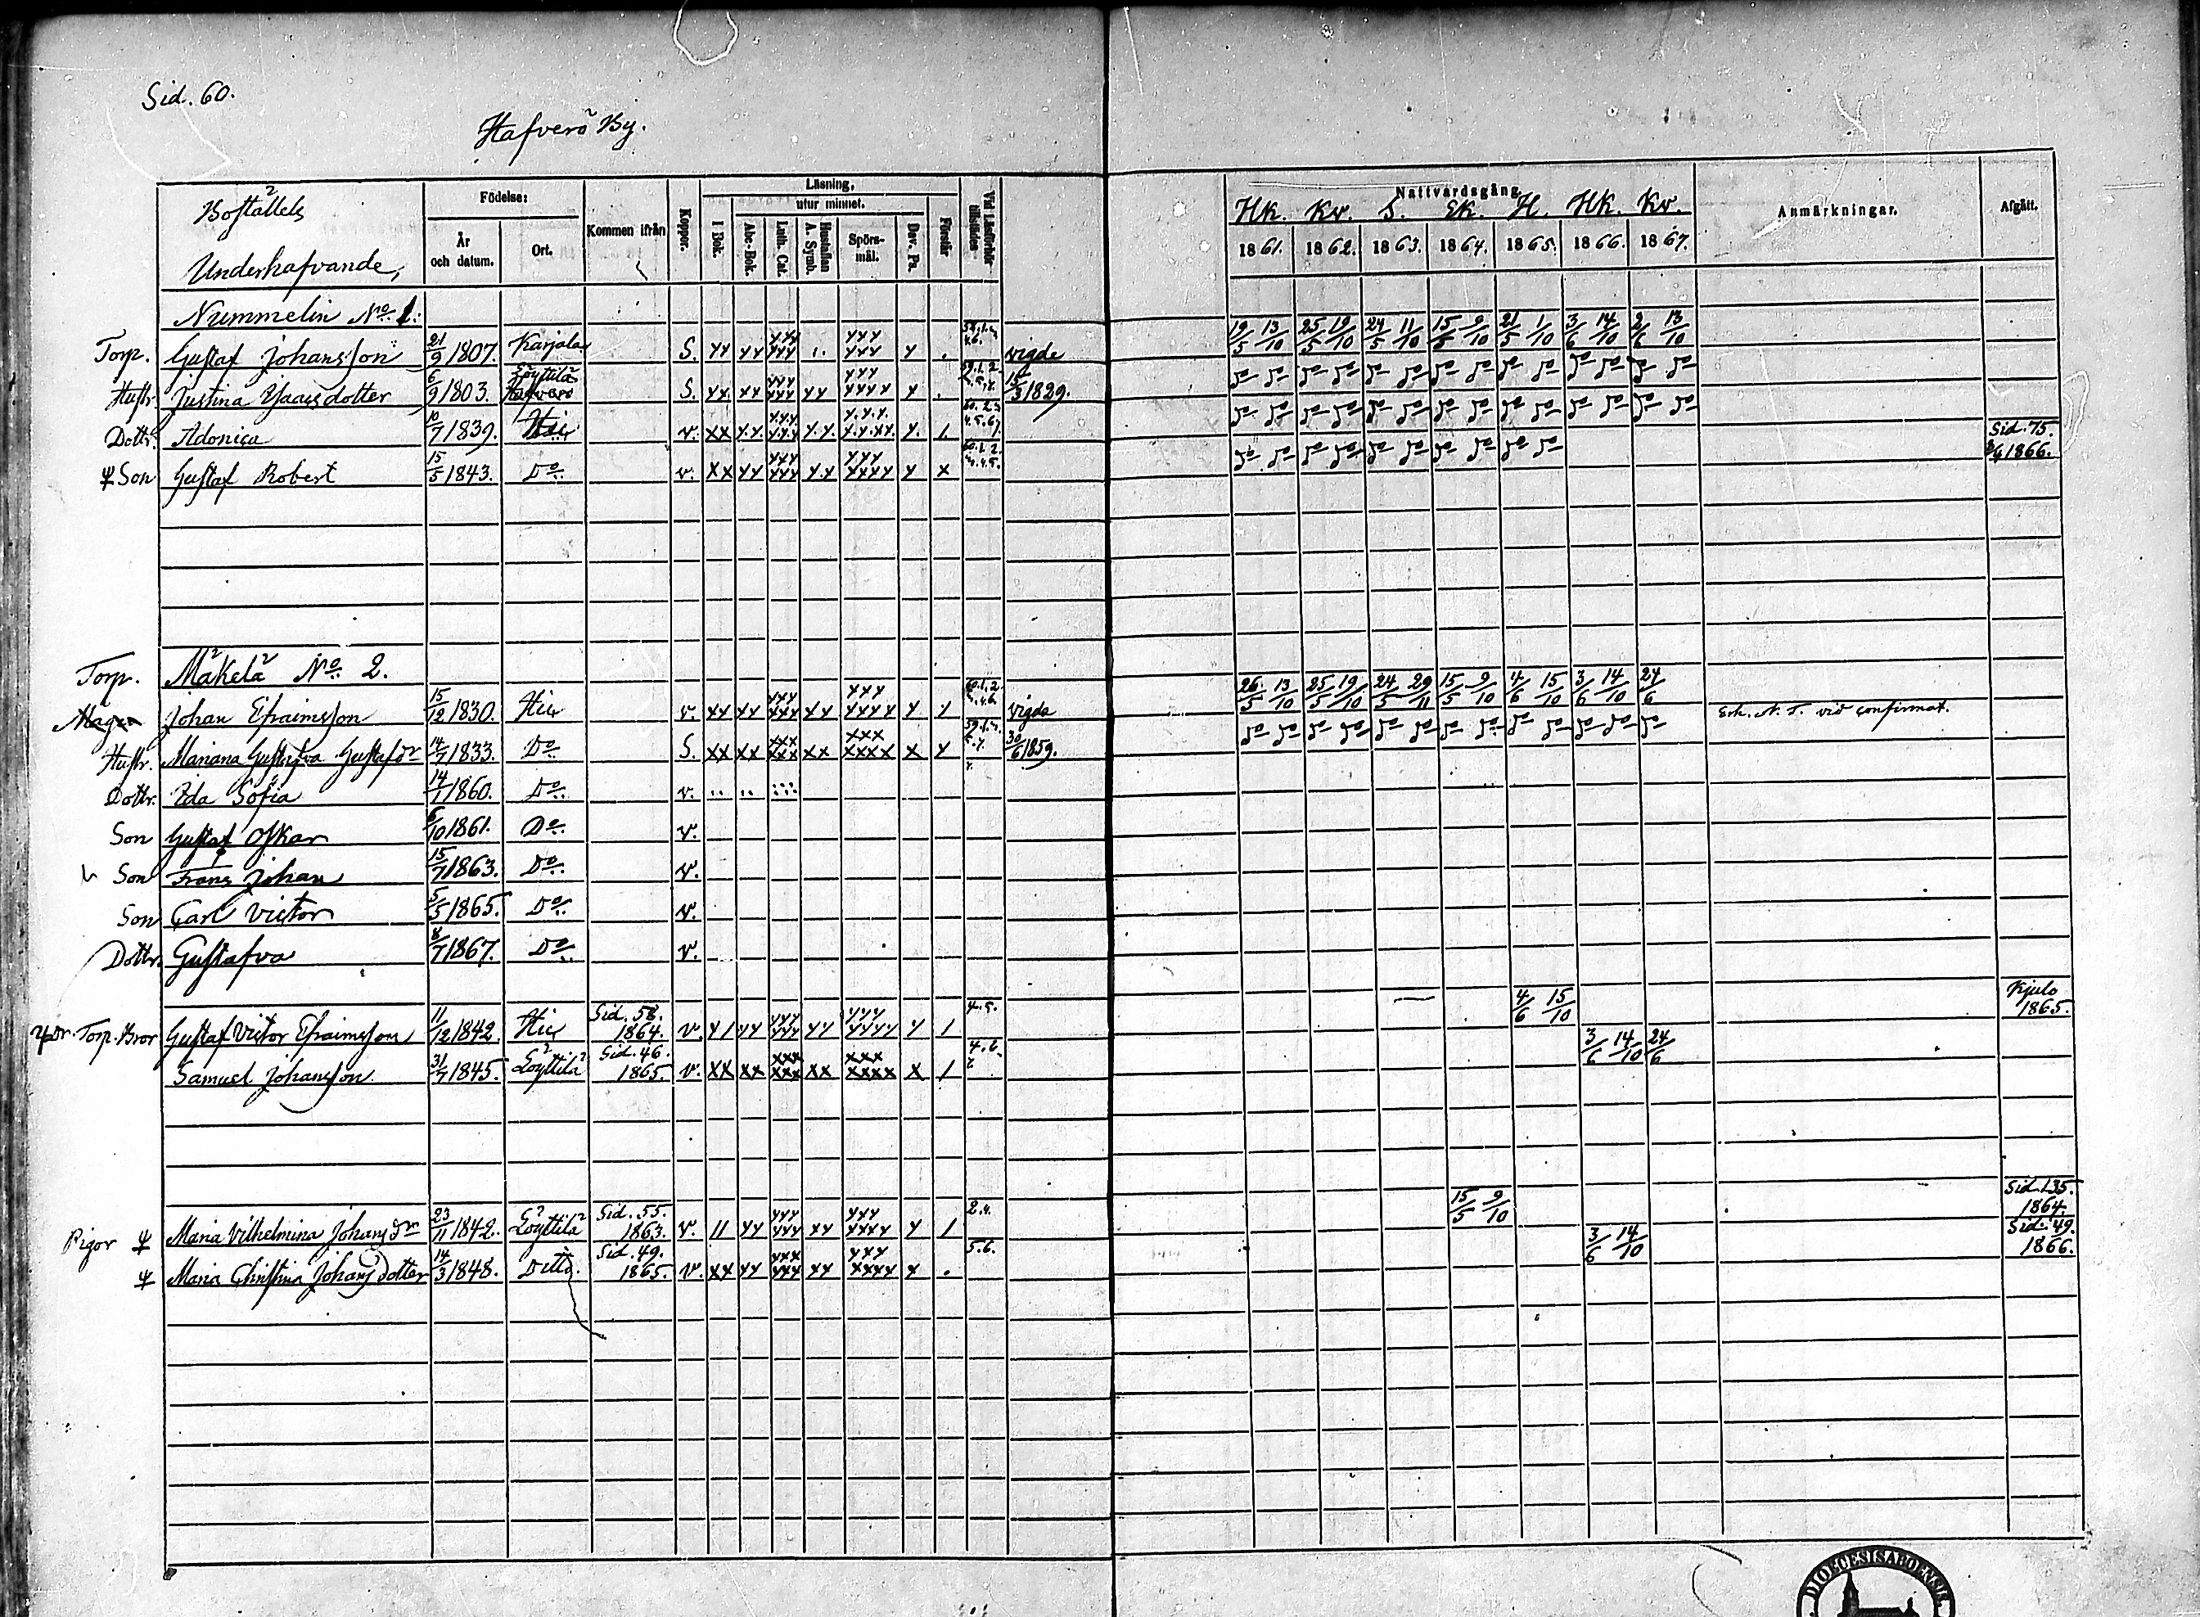 Sid. 60.
Hafverö By.
Boställets
Underhafvande,
Födelse:
År och datum.
Ort.
Kommen ifrån
Koppor.
Läsning,
utur minnet.
I Bok.
Abc-Bok.
Luth. Cat.
Hustaflan A. Symb.
Spörs-mål.
Dav. Ps.
Förstår
Vid Läsförhör tillstädes
Nattvardsgång
Hk. Kv. S. Ek. H. Hk. Kv.
1861. 1862. 1863. 1864. 1865. 1866. 1867.
Anmärkningar.
Afgått.
Nummelin No 1.
Torp. Gustaf Johansson 21/9 1807. Karjala S. vigde 19/5 13/10 25/5 19/10 24/5 11/10 15/5 9/10 21/5 1/10 3/6 14/10 2/6 13/10
Hustr. Justina Isaacsdotter 6/9 1803. Löyttilä S. 15/3 1829.
Dottr. Adonica 10/7 1839. Hic v.
Son Gustaf Robert 15/5 1843. Do v. Sid. 75. 1866.
Mäkelä No 2.
Torp. Johan Efraimsson 15/12 1830. Hic v. vigda 26/5 13/10 25/5 19/10 24/5 29/11 15/5 9/10 4/6 15/10 3/6 14/10 24/6 Erh. N. T. vid confirmat.
Hustr. Mariana Gustafva Gustafsdr 14/7 1833. Do S. 30/6 1859.
Dottr. Ida Sofia 14/1 1860. Do v.
Son Gustaf Oskar 6/10 1861. Do v.
Son Frans Johan 15/7 1863. Do v.
Son Carl Victor 5/5 1865. Do v.
Dottr. Gustafva 8/7 1867. Do v.
Torp. Bror Gustaf Victor Efraimsson 11/12 1842. Hic Sid. 58. 1864. v. 4.5. 4/6 15/10 Kjulo 1865.
Samuel Johansson 31/7 1845. Löyttilä Sid. 46. 1865. v. 3/6 14/10 24/6
Pigor Maria Vilhelmina Johansdr 23/11 1842. Löyttilä Sid. 55. 1863. v. 15/5 9/10 Sid. 135. 1864.
Maria Christina Johansdotter 14/3 1848. Ditto. Sid. 49. 1865. v. 5.6. 3/6 14/10 Sid. 49. 1866.
DIOECESIS ABOENSIS